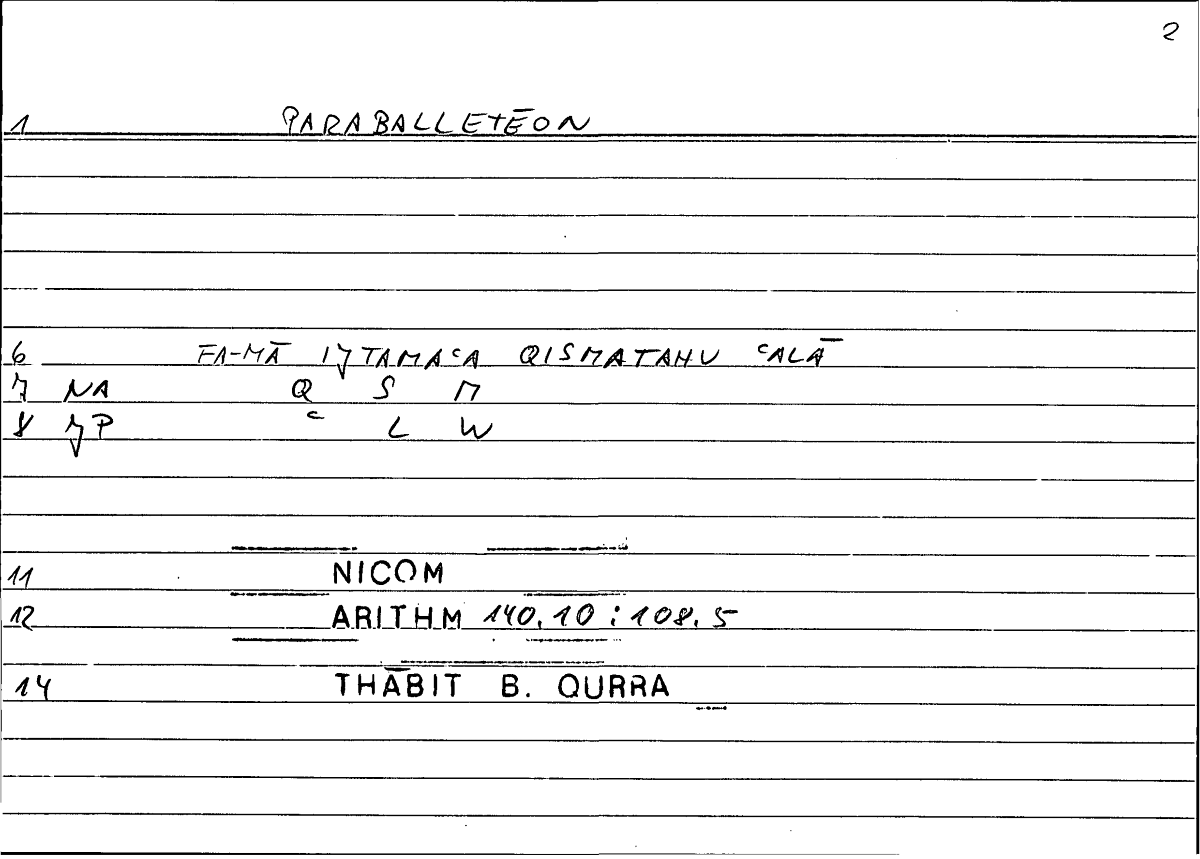 2
1 PARABALLETĒON
6 FA-MĀ IJTAMAᶜA QISMATAHU ᶜALĀ
7 NA Q S M
8 JP ᶜ L W
11 NICOM
12 ARITHM 140.10 : 108.5
14 THĀBIT B. QURRA